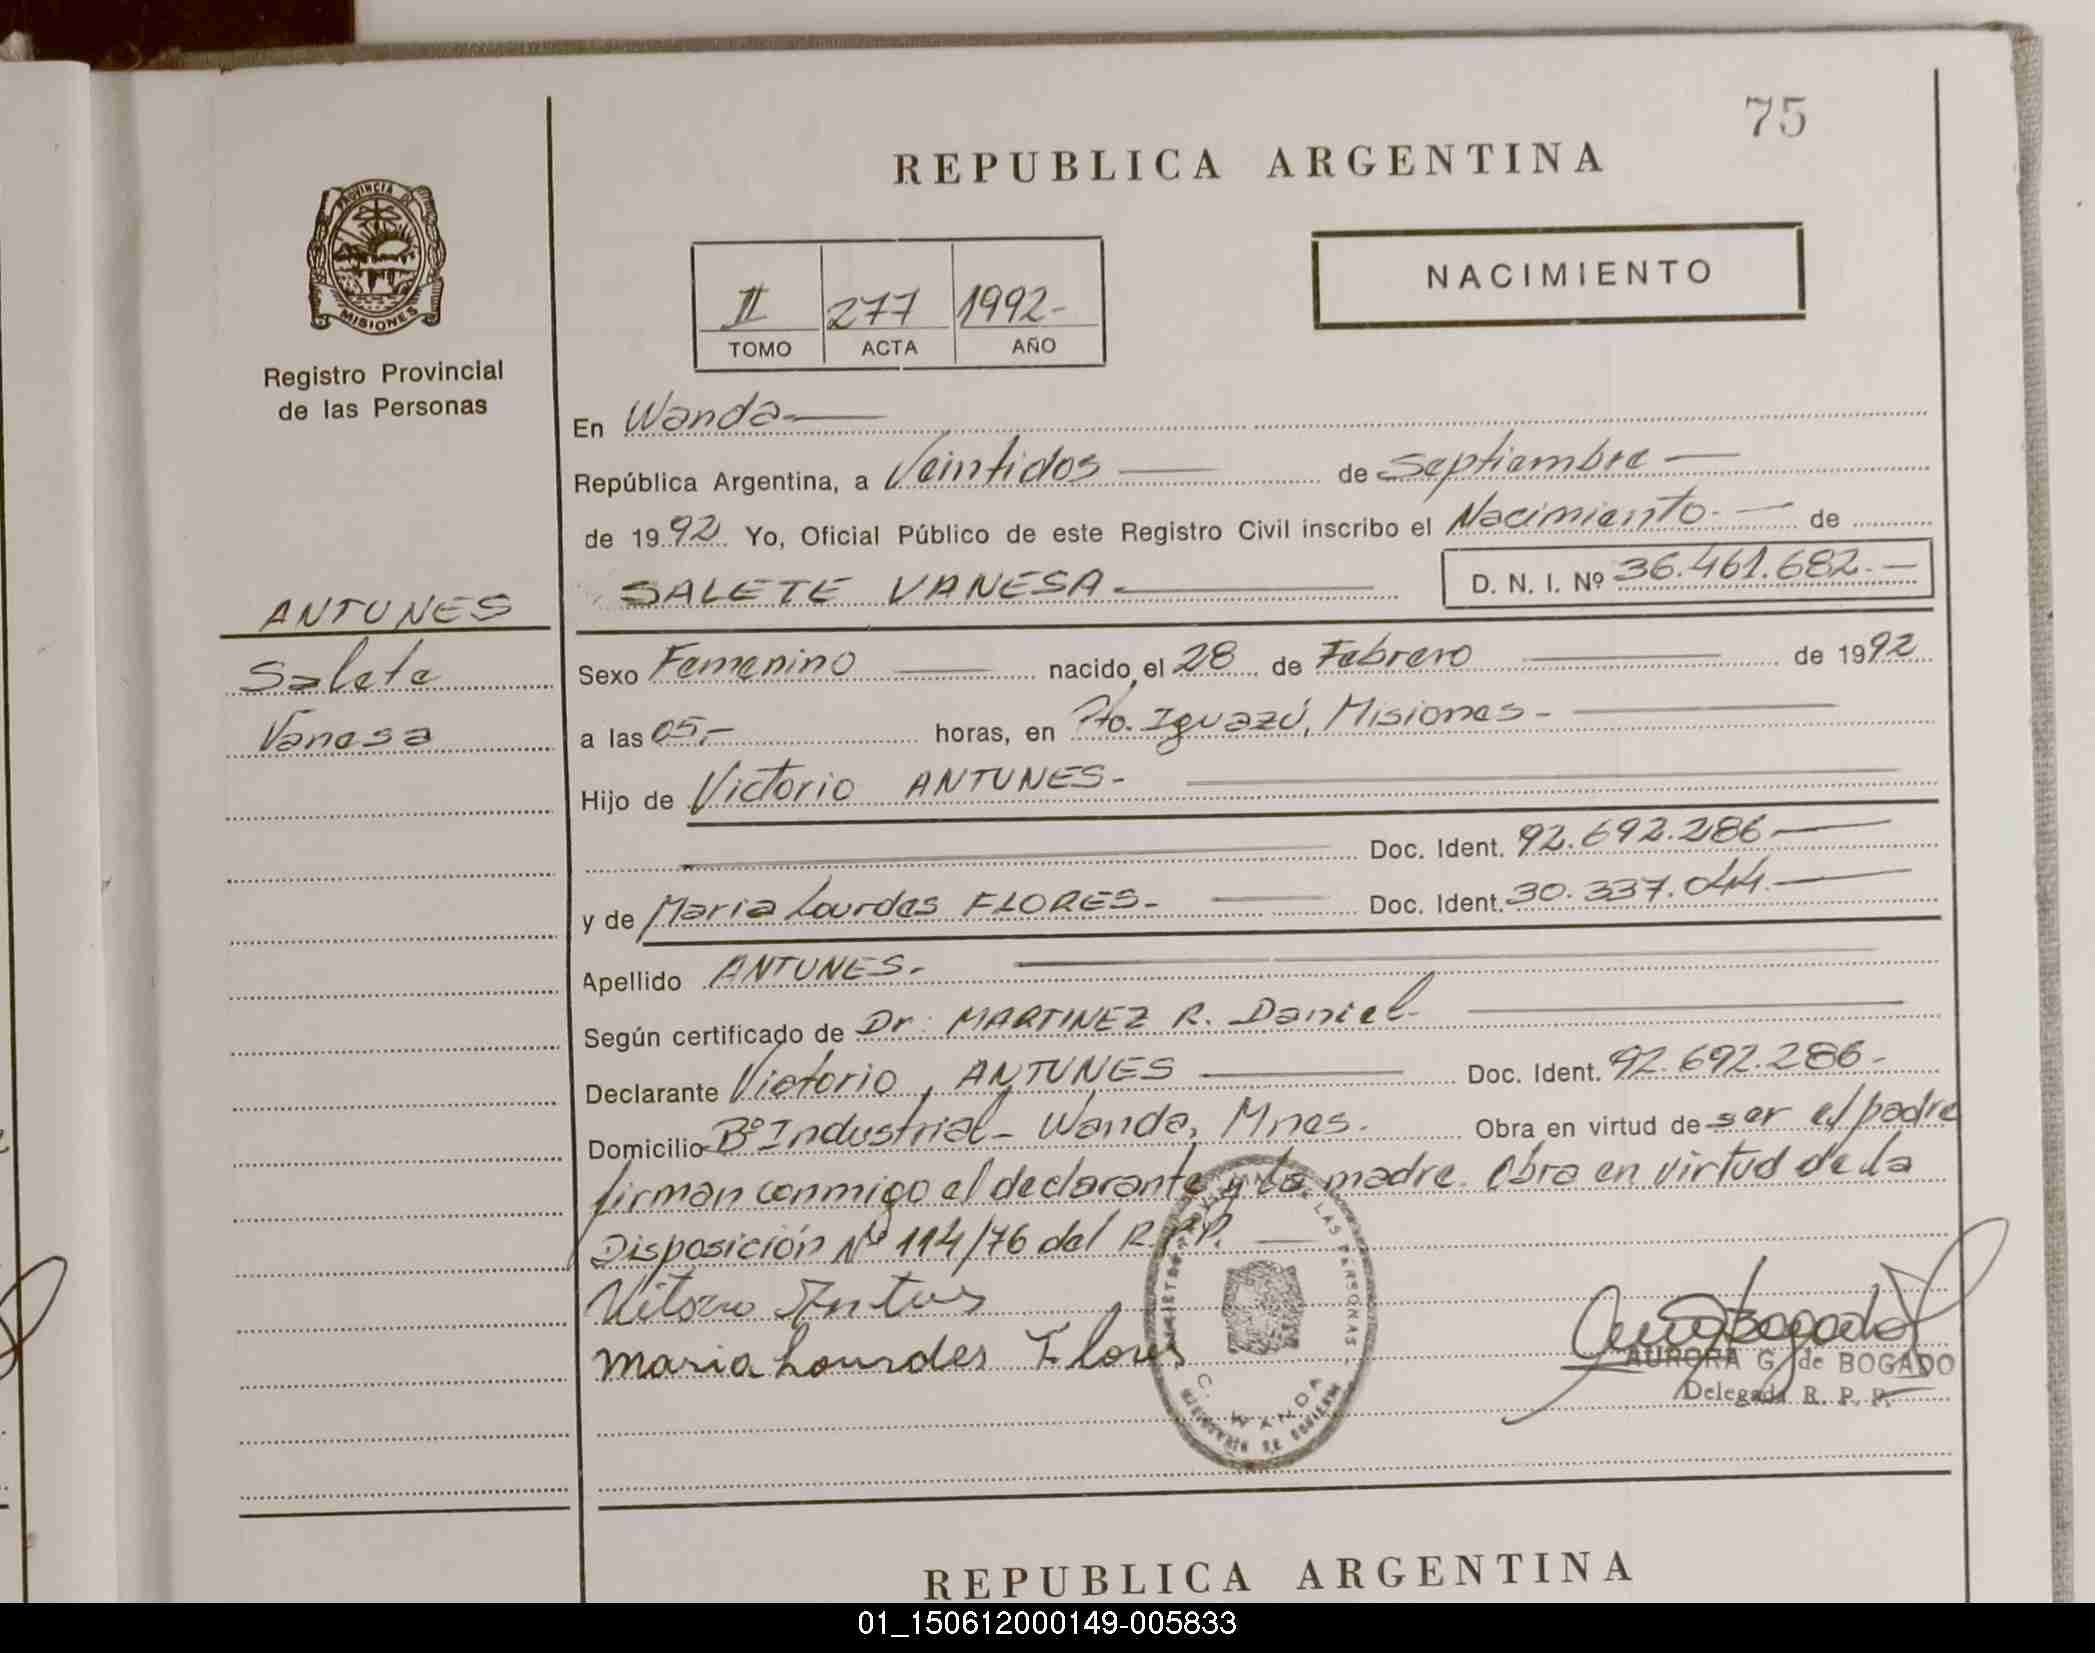 75
REPUBLICA ARGENTINA
PROVINCIA DE
MISIONES
Registro Provincial
de las Personas
NACIMIENTO
II 277 1992-
TOMO ACTA AÑO
En Wanda
República Argentina, a Veintidos de Septiembre
de 1992 Yo, Oficial Público de este Registro Civil inscribo el Nacimiento.- de
SALETE VANESA D. N. I. Nº 36.461.682.-
ANTUNES
Salete
Vanesa
Sexo Femenino nacido el 28 de Febrero de 1992
a las 05,- horas, en Pto. Iguazú, Misiones-
Hijo de Victorio ANTUNES-
Doc. Ident. 92.692.286
y de Maria Lourdes FLORES- Doc. Ident. 30.337.044.
Apellido ANTUNES.
Según certificado de Dr. MARTINEZ R. Daniel-
Declarante Victorio, ANTUNES Doc. Ident. 92.692.286-
Domicilio Bº Industrial- Wanda, Mnes. Obra en virtud de ser el padre
firman conmigo el declarante y la madre. Obra en virtud de la
Disposición Nº 114/76 del R.P.P.
Maria Lourdes Flores
LAS PERSONAS
WANDA
AURORA G. de BOGADO
Delegada R. P. P.
REPUBLICA ARGENTINA
01_150612000149-005833